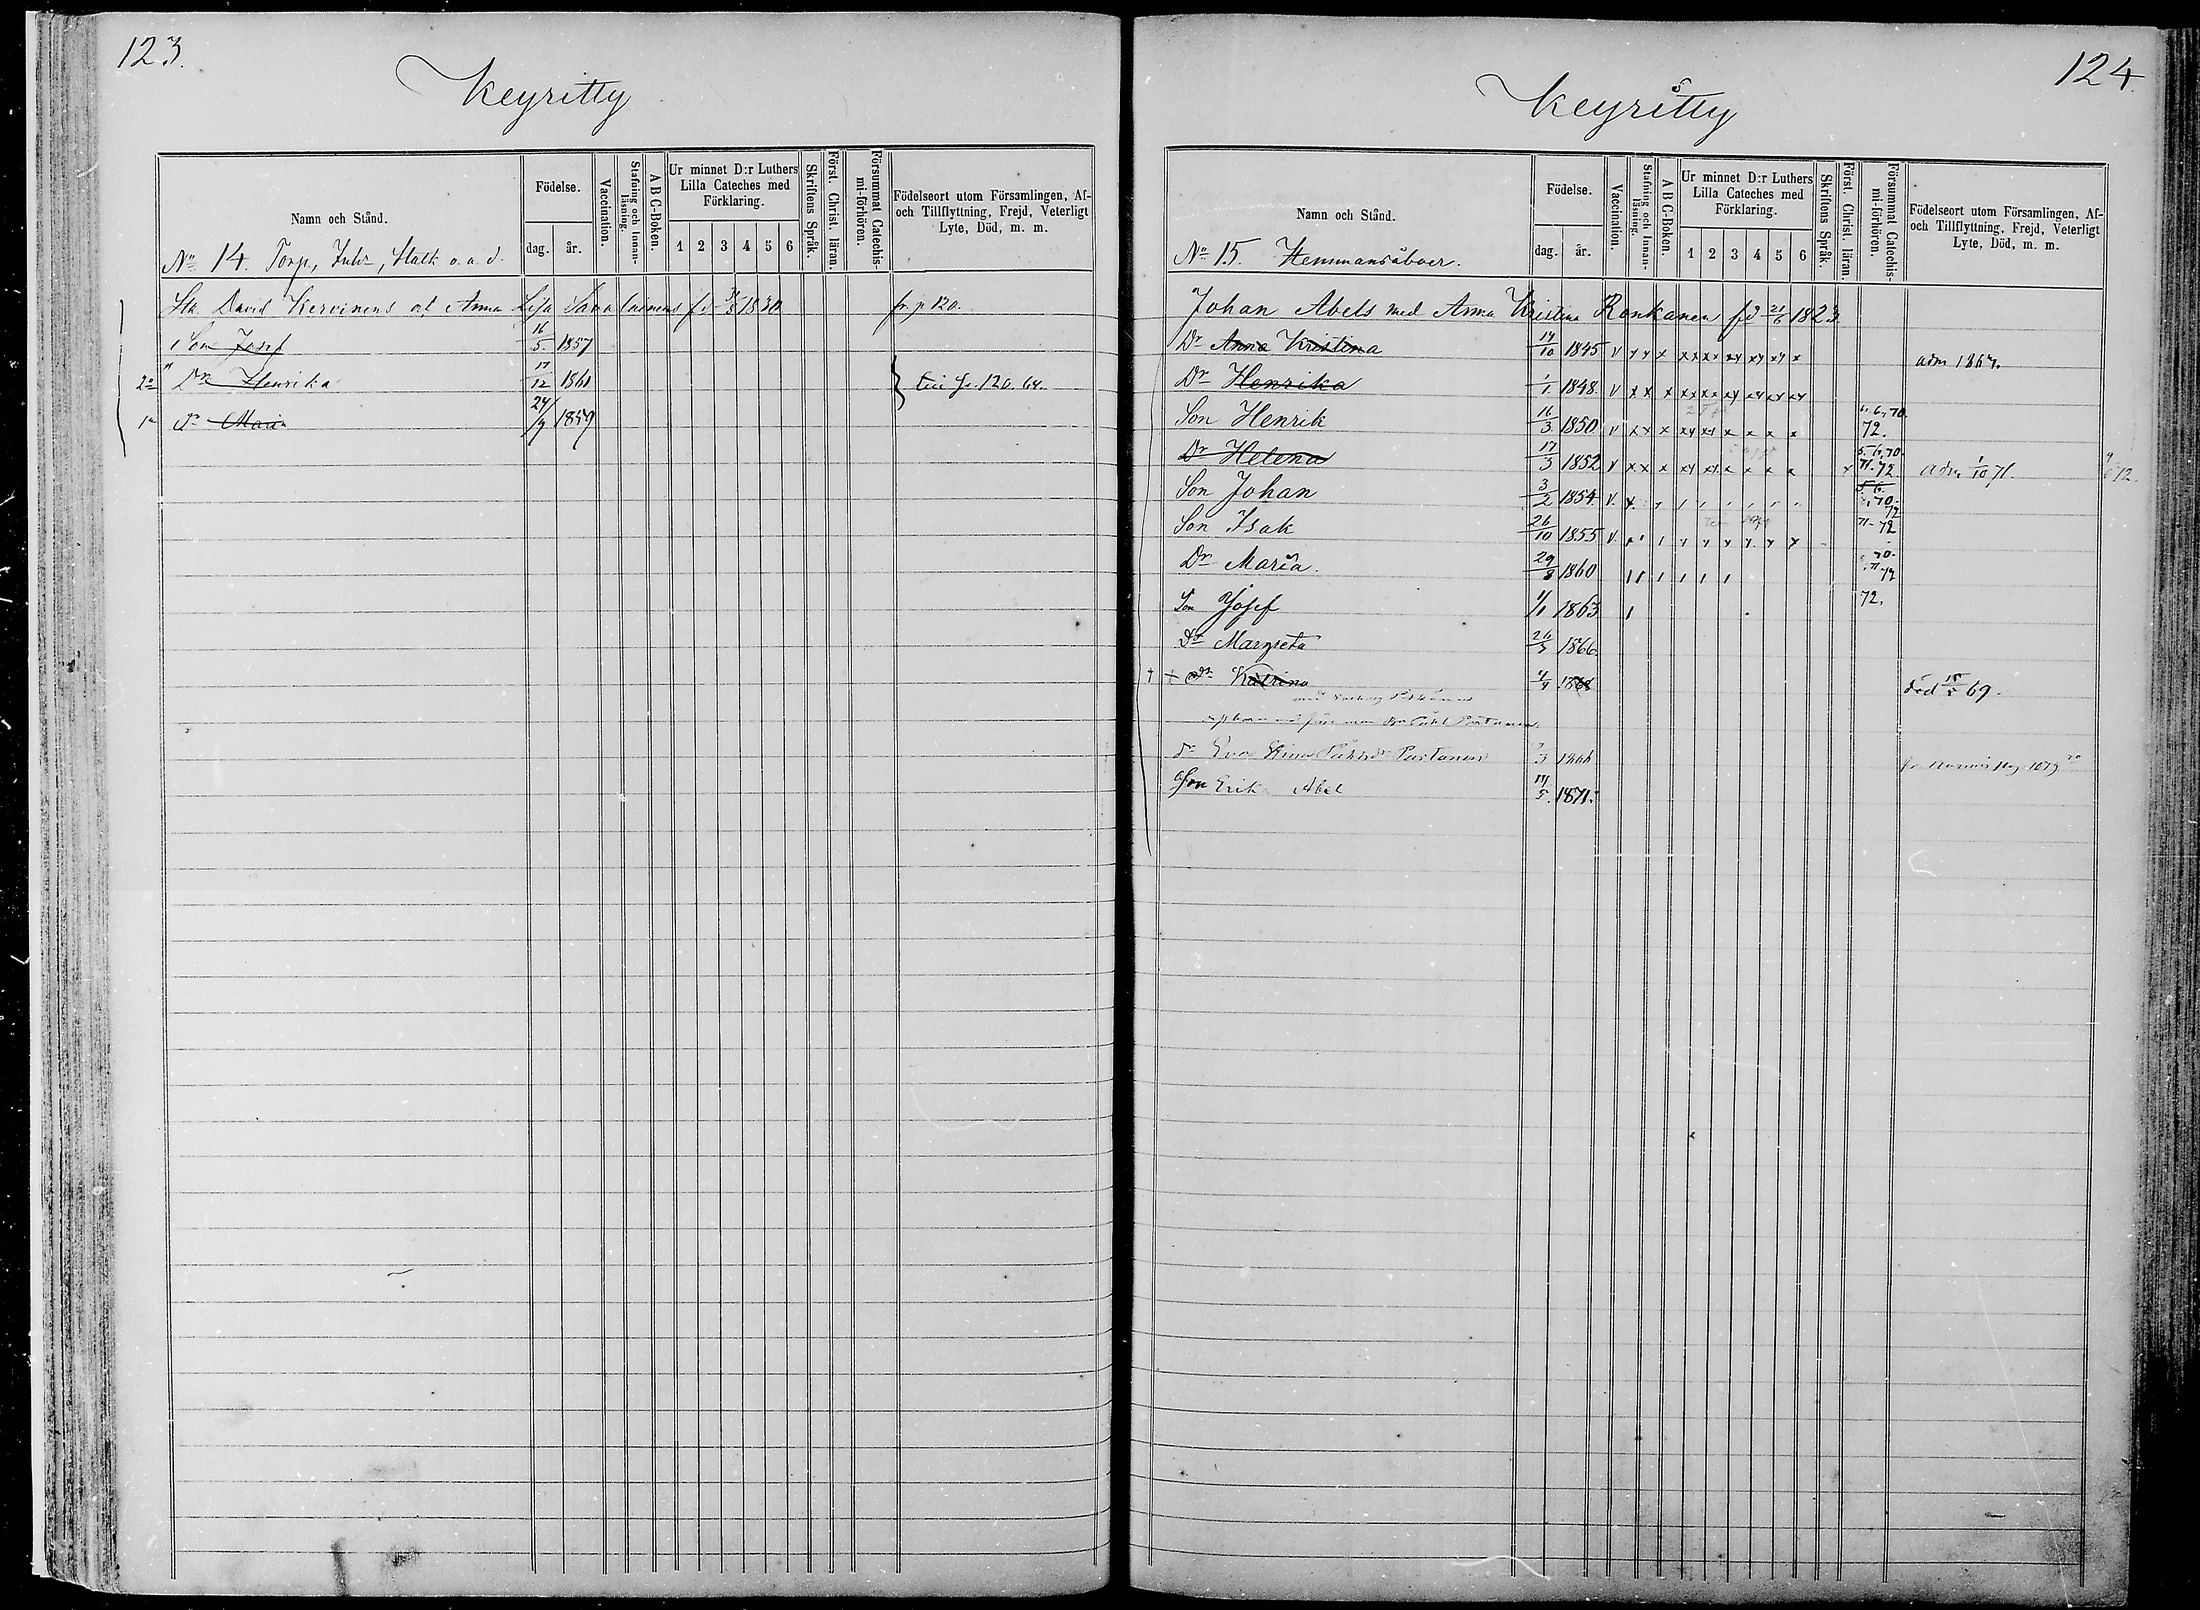 123.
Keyritty
Namn och Stånd.
Födelse.
dag.
år.
Vaccination.
Stafning och Innanläsning.
A B C-Boken.
Ur minnet D:r Luthers Lilla Cateches med Förklaring.
1 2 3 4 5 6
Skriftens Språk.
Först. Christ. läran.
Försummat Catechismi-förhören.
Födelseort utom Församlingen, Af- och Tillflyttning, Frejd, Veterligt Lyte, Död, m. m.
No 14. Torp, Inh, Statk o. a. d.
David Kervinens Anna Lisa 1830 fr. p 120.
Son Josef 16/5 1857
2o Dr Henrika 17/12 1861 120. 64.
1o dr Maria 24/9 1859
124.
Keyritty
Namn och Stånd.
Födelse.
dag.
år.
Vaccination.
Stafning och Innanläsning.
A B C-Boken.
Ur minnet D:r Luthers Lilla Cateches med Förklaring.
1 2 3 4 5 6
Skriftens Språk.
Först. Christ. läran.
Försummat Catechismi-förhören.
Födelseort utom Församlingen, Af- och Tillflyttning, Frejd, Veterligt Lyte, Död, m. m.
No 15. Hemmansåboer.
Johan Abels med Anna Kristina Ronkanen fd 21/6 1823.
Dr Anna Kristina 14/10 1845 v adm 1864.
Dr Henrika 1/1 1848 v
Son Henrik 16/3 1850 v 6, 70. 72.
Dr Helena 17/3 1852 v 5. 6, 70. 71. 72 adm 1/10 71.
Son Johan 3/2 1854 v 5. 6. 70. 72
Son Isak 26/10 1855 v 71. 72
Dr Maria 29/8 1860 70. 71. 72
Son Josef 1/1 1863 72.
Dr Margreta 26/3 1866
† dr Katrina 4/4 1868 död 15/5 69.
dr Eva Stina Partanen 3 1866
Son Erik Abel 14/5 1871.